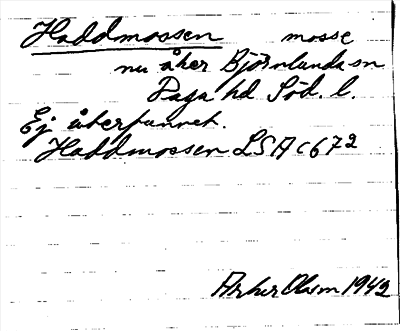 Haddmossen mosse
nu åker Björnlunda sn
Daga hd Söd. l.
Ej återfunnet.
Haddmossen LSA C672
Olsson 1942